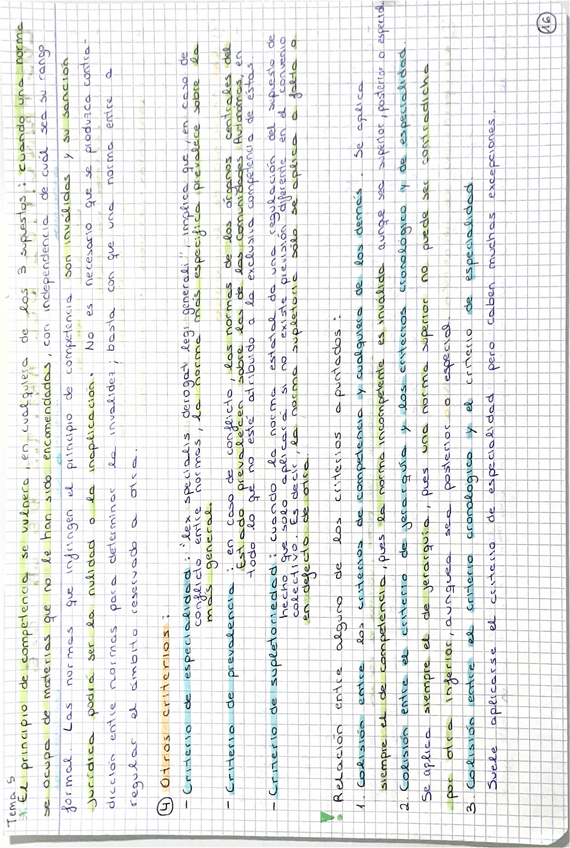 Tema 5
El principio de competencia se vulnera, en cualquiera de los 3 supestos: cuando una norma
se ocupa de materias que no le han sido encomendadas, con independencia de cuál sea su rango
formal. Las normas que infringen el principio de competencia son invalidas y su sanción
jurídica podrá ser la nulidad o la inaplicación. No es necesario que se produzca contra-
dicción entre normas para determinar la invalidez; basta con que una norma entre a
regular el ámbito reservado a otra.
④ Otros criterios:
- Criterio de especialidad: "lex specialis derogat legi generali", implica que, en caso de
conflicto entre normas, la norma más específica prevalece sobre la
más general.
- Criterio de prevalencia: en caso de conflicto, las normas de los órganos centrales del
Estado prevalecen sobre las de las Comunidades Autónomas, en
todo lo que no esté atribuido a la exclusiva competencia de éstas.
- Criterio de supletoriedad: cuando la norma estatal da una regulación del supuesto de
hecho que solo aplicará si no existe previsión diferente en el convenio
colectivo. Es decir, la norma supletoria solo se aplica a falta o
en defecto de otra.
Relación entre alguno de los criterios apuntados:
1. Colisión entre los criterios de competencia y cualquiera de los demás. Se aplica
siempre el de competencia, pues la norma incompetente es invalida aunqe sea superior, posterior o especial
2. Colisión entre el criterio de jerarquía y los criterios cronológico y de especialidad.
Se aplica siempre el de jerarquía, pues una norma superior no puede ser contradicha
por otra inferior, aunquea sea posterior o especial.
3. Colisión entre el criterio cronológico y el criterio de especialidad
Suele aplicarse el criterio de especialidad pero caben muchas excepciones.
16